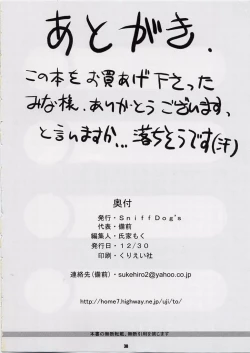 あとがき.
この本をお買あげ下さった
みな様、ありがとうございます、
と言いますか… 落ちそうです(汗)
奥付
発行・Ｓｎｉｆｆ Ｄｏｇ's
代表・備前
編集人・氏家もく
発行日・１２/３０
印刷・くりえい社
連絡先(備前)・sukehiro2@yahoo.co.jp
http://home7.highway.ne.jp/uji/to/
本書の無断転載、無断引用を禁じます
38